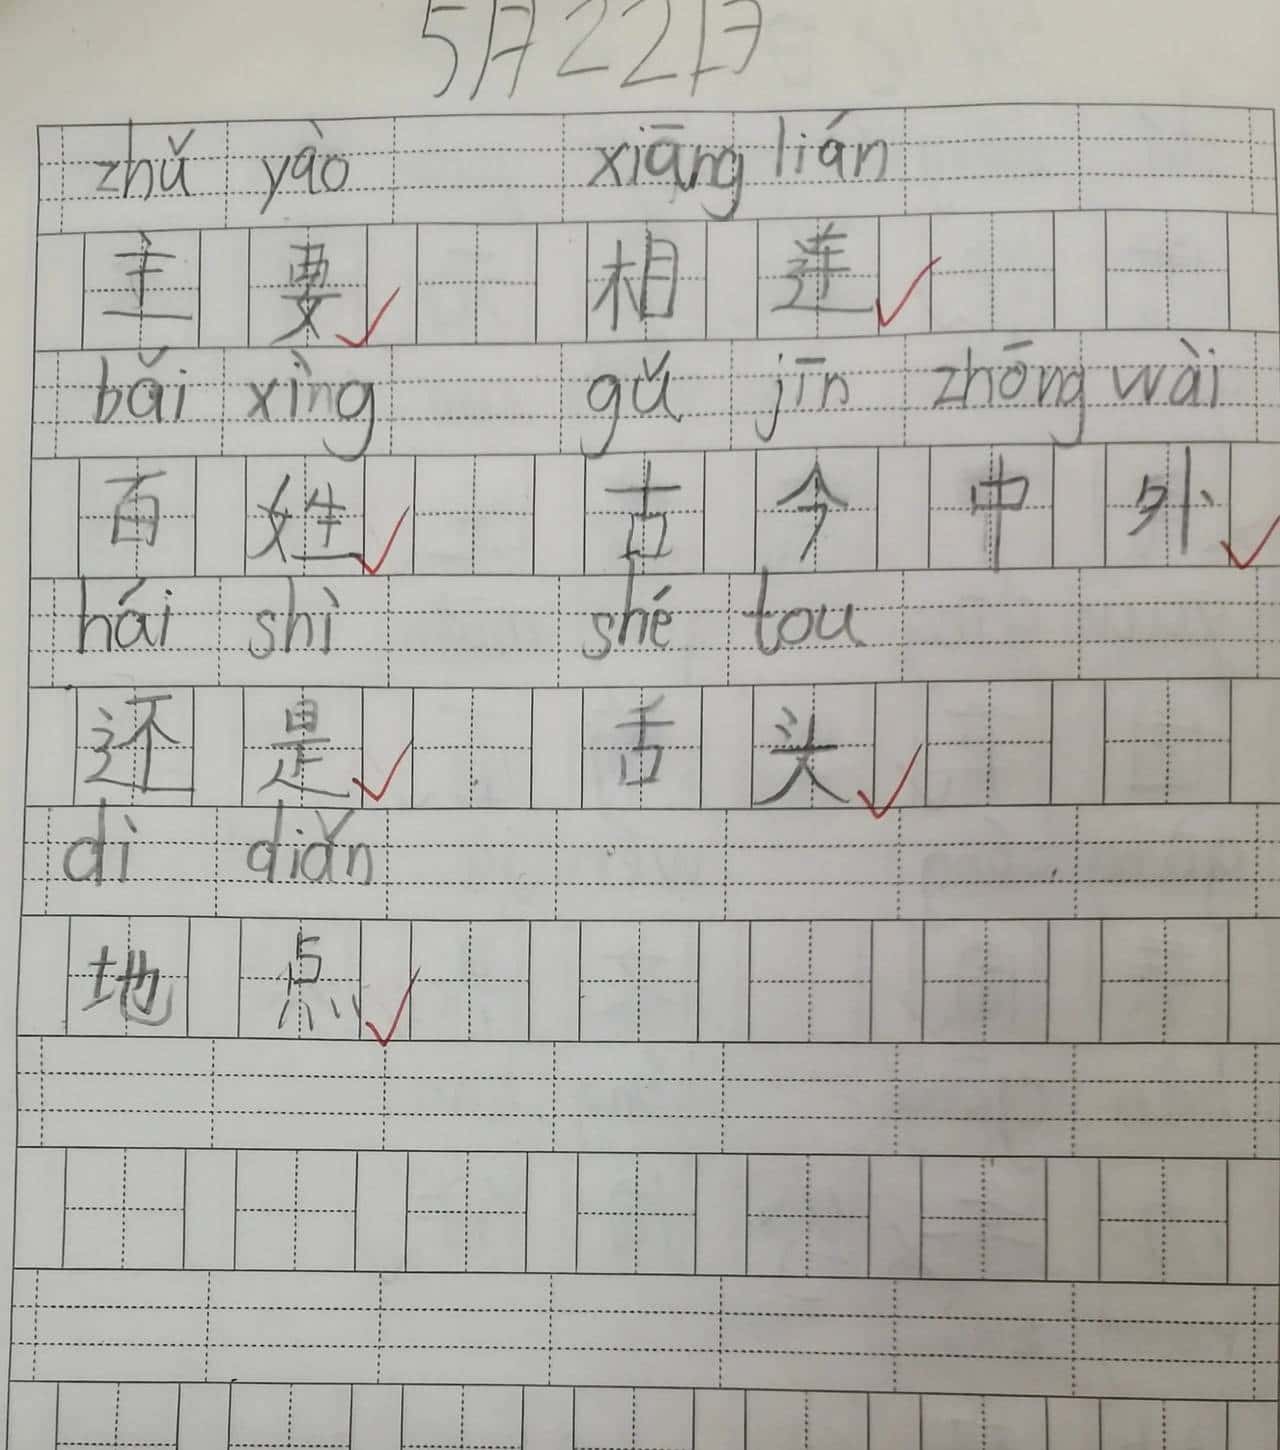 5月22日
zhǔ yào xiāng lián
主要 相连
bǎi xìng gǔ jīn zhōng wài
百姓 古今中外
hái shì shé tou
还是 舌头
dì diǎn
地点